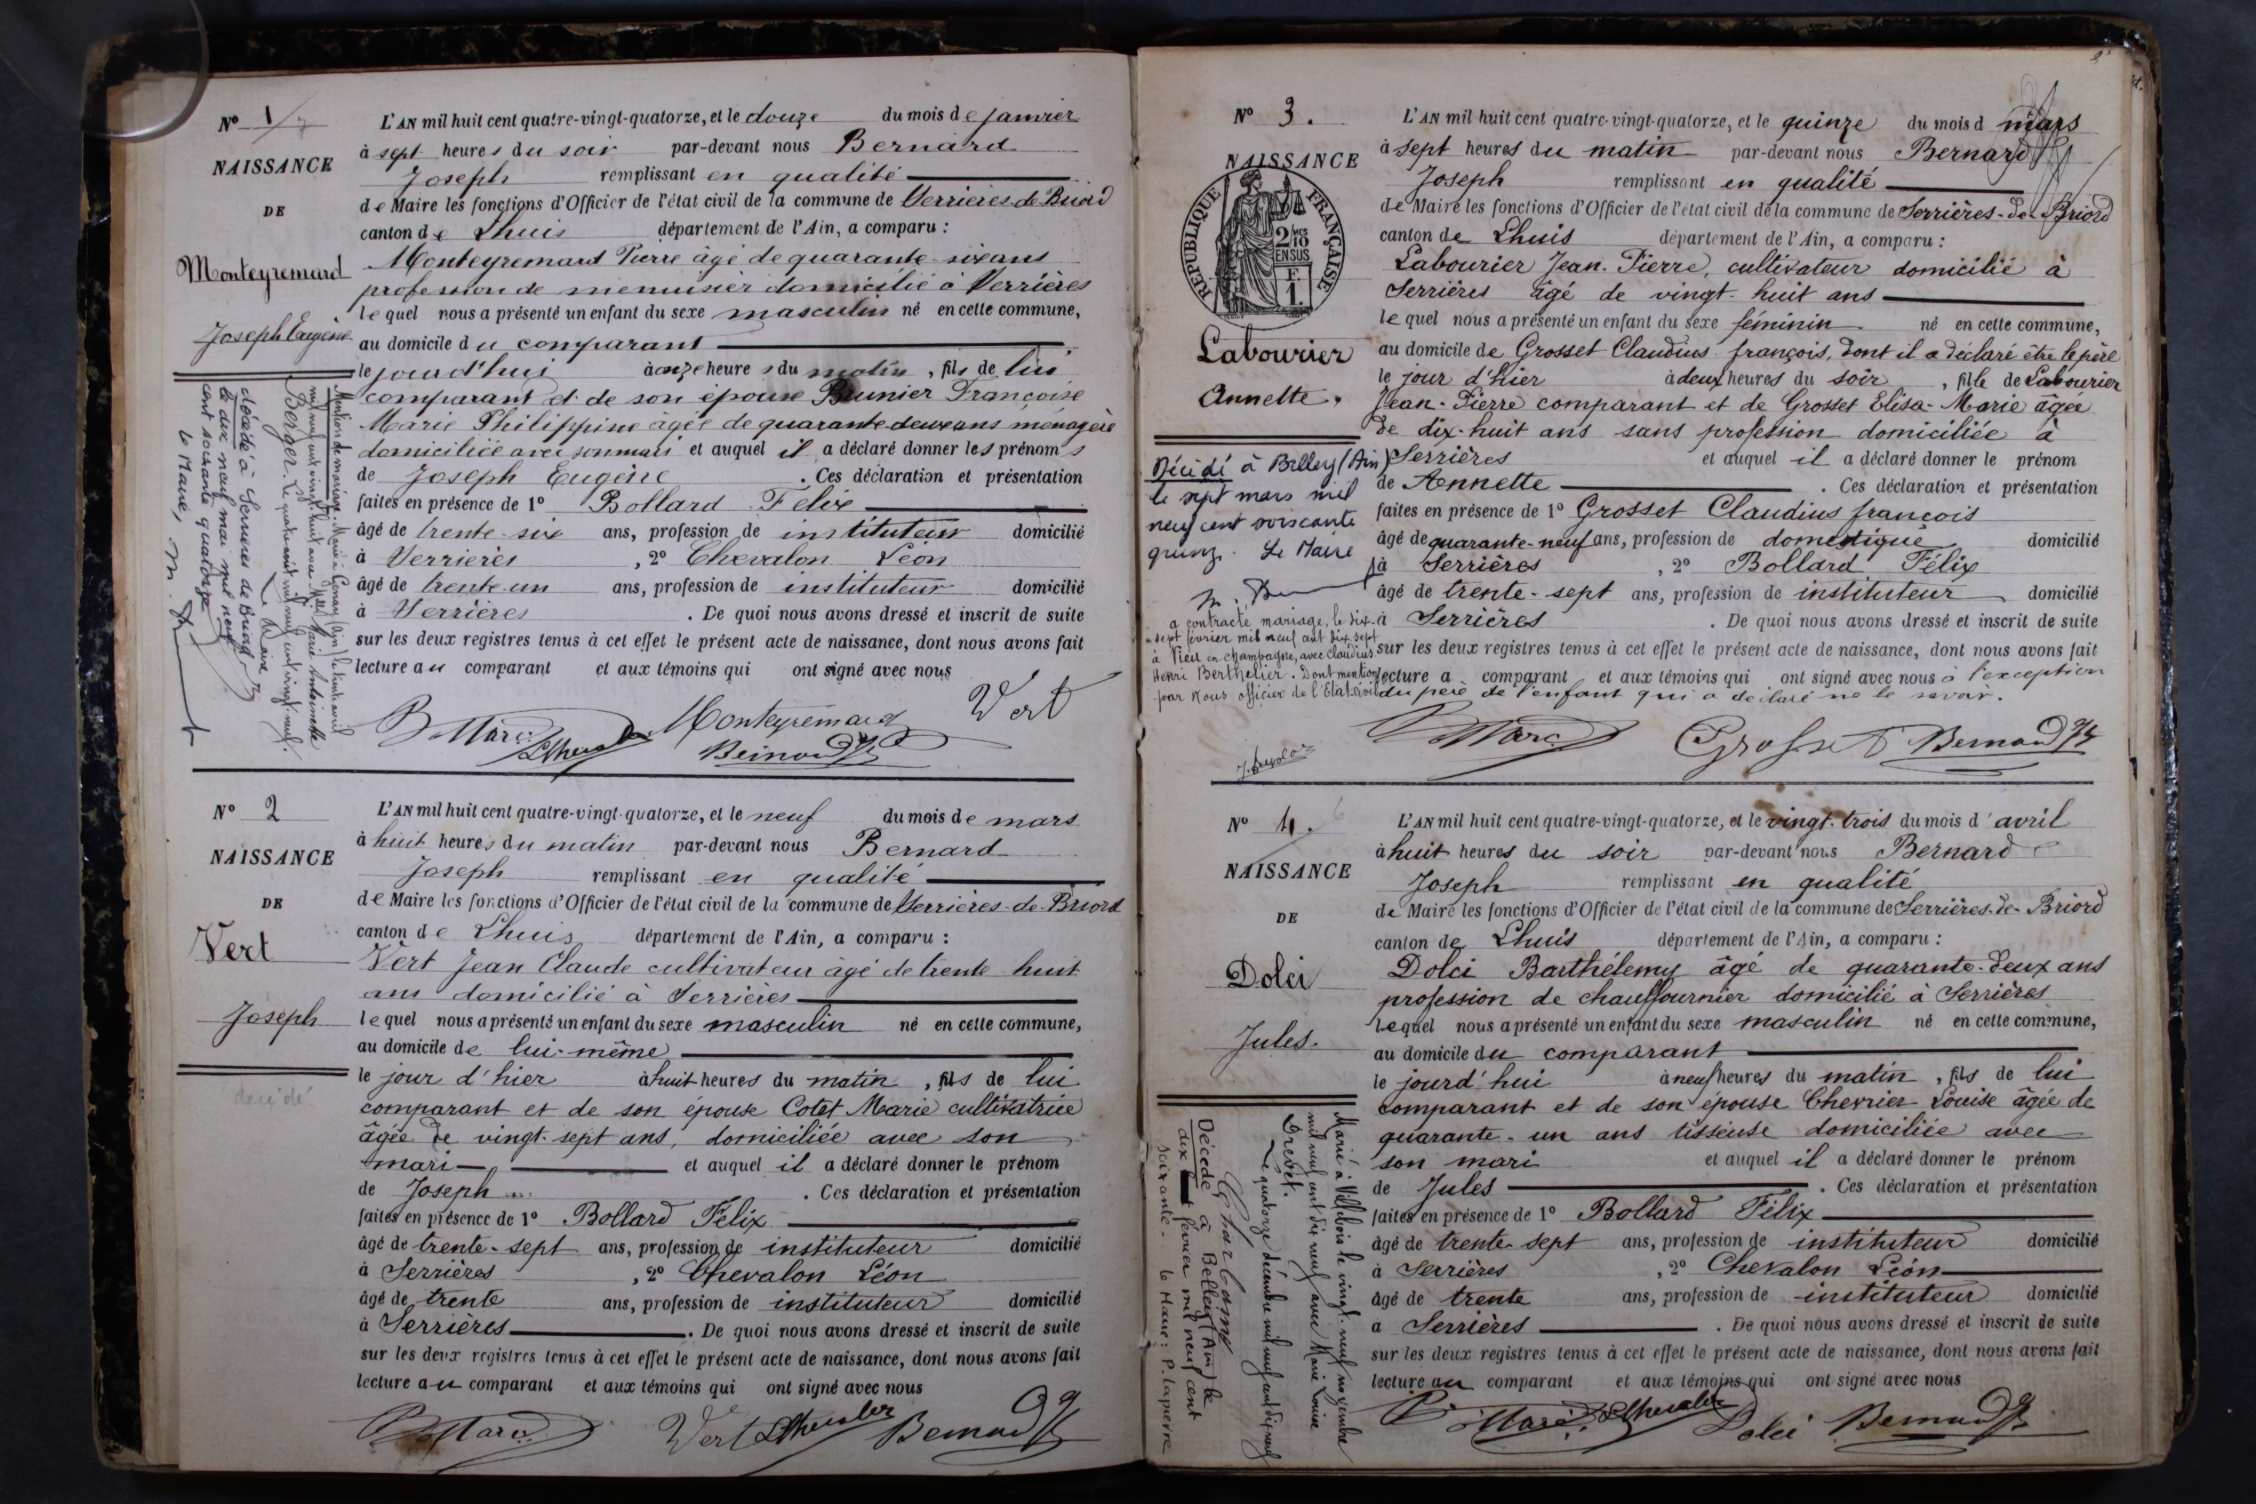 Nº 1
NAISSANCE
DE
Monteyremard
Joseph Eugène
L'AN mil huit cent quatre-vingt-quatorze, et le douze du mois de janvier
à sept heures du soir par-devant nous Bernard
Joseph remplissant en qualité
de Maire les fonctions d'Officier de l'état civil de la commune de Serrières-de-Briord
canton de Lhuis département de l'Ain, a comparu :
Monteyremard Pierre âgé de quarante-six ans
profession de menuisier domicilié à Serrières
lequel nous a présenté un enfant du sexe masculin né en cette commune,
au domicile du comparant
le jourd'hui à onze heures du matin, fils de lui
comparant et de son épouse Brunier Françoise
Marie Philippine âgée de quarante-deux ans ménagère
domiciliée avec son mari et auquel il a déclaré donner les prénoms
de Joseph Eugène . Ces déclaration et présentation
faites en présence de 1º Bollard Félix
âgé de trente-six ans, profession de instituteur domicilié
à Serrières , 2º Chevalon Léon
âgé de trente un ans, profession de instituteur domicilié
à Serrières . De quoi nous avons dressé et inscrit de suite
sur les deux registres tenus à cet effet le présent acte de naissance, dont nous avons fait
lecture au comparant et aux témoins qui ont signé avec nous
Monteyremard Vert
Bernard
Mention de mariage. Marié à
mil neuf cent vingt-huit avec Marie Antoinette
Berger. Le quatre avril mil neuf cent vingt neuf.
Le Maire
décédé à Serrières de Briord
le deux neuf mai mil neuf
cent soixante quatorze
Le Maire,
Nº 2
NAISSANCE
DE
Vert
Joseph
décédé
L'AN mil huit cent quatre-vingt-quatorze, et le neuf du mois de mars
à huit heures du matin par-devant nous Bernard
Joseph remplissant en qualité
de Maire les fonctions d'Officier de l'état civil de la commune de Serrières-de-Briord
canton de Lhuis département de l'Ain, a comparu :
Vert Jean Claude cultivateur âgé de trente huit
ans domicilié à Serrières
lequel nous a présenté un enfant du sexe masculin né en cette commune,
au domicile de lui-même
le jour d'hier à huit heures du matin, fils de lui
comparant et de son épouse Cotet Marie cultivatrice
âgée de vingt-sept ans, domiciliée avec son
mari et auquel il a déclaré donner le prénom
de Joseph . Ces déclaration et présentation
faites en présence de 1º Bollard Félix
âgé de trente-sept ans, profession de instituteur domicilié
à Serrières , 2º Chevalon Léon
âgé de trente ans, profession de instituteur domicilié
à Serrières . De quoi nous avons dressé et inscrit de suite
sur les deux registres tenus à cet effet le présent acte de naissance, dont nous avons fait
lecture au comparant et aux témoins qui ont signé avec nous
Vert Bernard
Nº 3.
NAISSANCE
RÉPUBLIQUE FRANÇAISE
2/10 EN SUS
F. 1.
Labourier
Annette.
L'AN mil huit cent quatre-vingt-quatorze, et le quinze du mois d mars
à sept heures du matin par-devant nous Bernard
Joseph remplissant en qualité
de Maire les fonctions d'Officier de l'état civil de la commune de Serrières-de-Briord
canton de Lhuis département de l'Ain, a comparu :
Labourier Jean-Pierre, cultivateur domicilié à
Serrières âgé de vingt-huit ans
lequel nous a présenté un enfant du sexe féminin né en cette commune,
au domicile de Grosset Claudius françois, dont il a déclaré être le père
le jour d'hier à deux heures du soir, fille de Labourier
Jean-Pierre comparant et de Grosset Elisa-Marie âgée
de dix-huit ans sans profession domiciliée à
Serrières et auquel il a déclaré donner le prénom
de Annette . Ces déclaration et présentation
faites en présence de 1º Grosset Claudius françois
âgé de quarante-neuf ans, profession de domestique domicilié
à Serrières , 2º Bollard Félix
âgé de trente-sept ans, profession de instituteur domicilié
à Serrières . De quoi nous avons dressé et inscrit de suite
sur les deux registres tenus à cet effet le présent acte de naissance, dont nous avons fait
lecture a comparant et aux témoins qui ont signé avec nous à l'exception
du père de l'enfant qui a déclaré ne le savoir.
Grosset Bernard
Décédé à Belley (Ain)
le sept mars mil
neuf cent soixante
quinze. Le Maire
a contracté mariage, le dix-
sept février mil neuf cent dix-sept
à Vieu en Champagne, avec Claudius
Henri Berthelier. Dont mention
par nous officier de l'Etat-civil
Nº 4.
NAISSANCE
DE
Dolci
Jules.
L'AN mil huit cent quatre-vingt-quatorze, et le vingt-trois du mois d'avril
à huit heures du soir par-devant nous Bernard
Joseph remplissant en qualité
de Maire les fonctions d'Officier de l'état civil de la commune de Serrières-de-Briord
canton de Lhuis département de l'Ain, a comparu :
Dolci Barthélemy âgé de quarante-deux ans
profession de chauffournier domicilié à Serrières
lequel nous a présenté un enfant du sexe masculin né en cette commune,
au domicile du comparant
le jourd'hui à neuf heures du matin, fils de lui
comparant et de son épouse Chevrier Louise âgée de
quarante-un ans tisseuse domiciliée avec
son mari et auquel il a déclaré donner le prénom
de Jules . Ces déclaration et présentation
faites en présence de 1º Bollard Félix
âgé de trente-sept ans, profession de instituteur domicilié
à Serrières , 2º Chevalon Léon
âgé de trente ans, profession de instituteur domicilié
a Serrières . De quoi nous avons dressé et inscrit de suite
sur les deux registres tenus à cet effet le présent acte de naissance, dont nous avons fait
lecture au comparant et aux témoins qui ont signé avec nous
Dolci Bernard
Marié à Villebois le vingt-neuf novembre
mil neuf cent dix neuf avec Marie Louise
Le quatorze décembre mil neuf cent dix neuf
Décédé à Belley (Ain) le
dix février mil neuf cent
soixante. Le Maire: P. Lapeyre